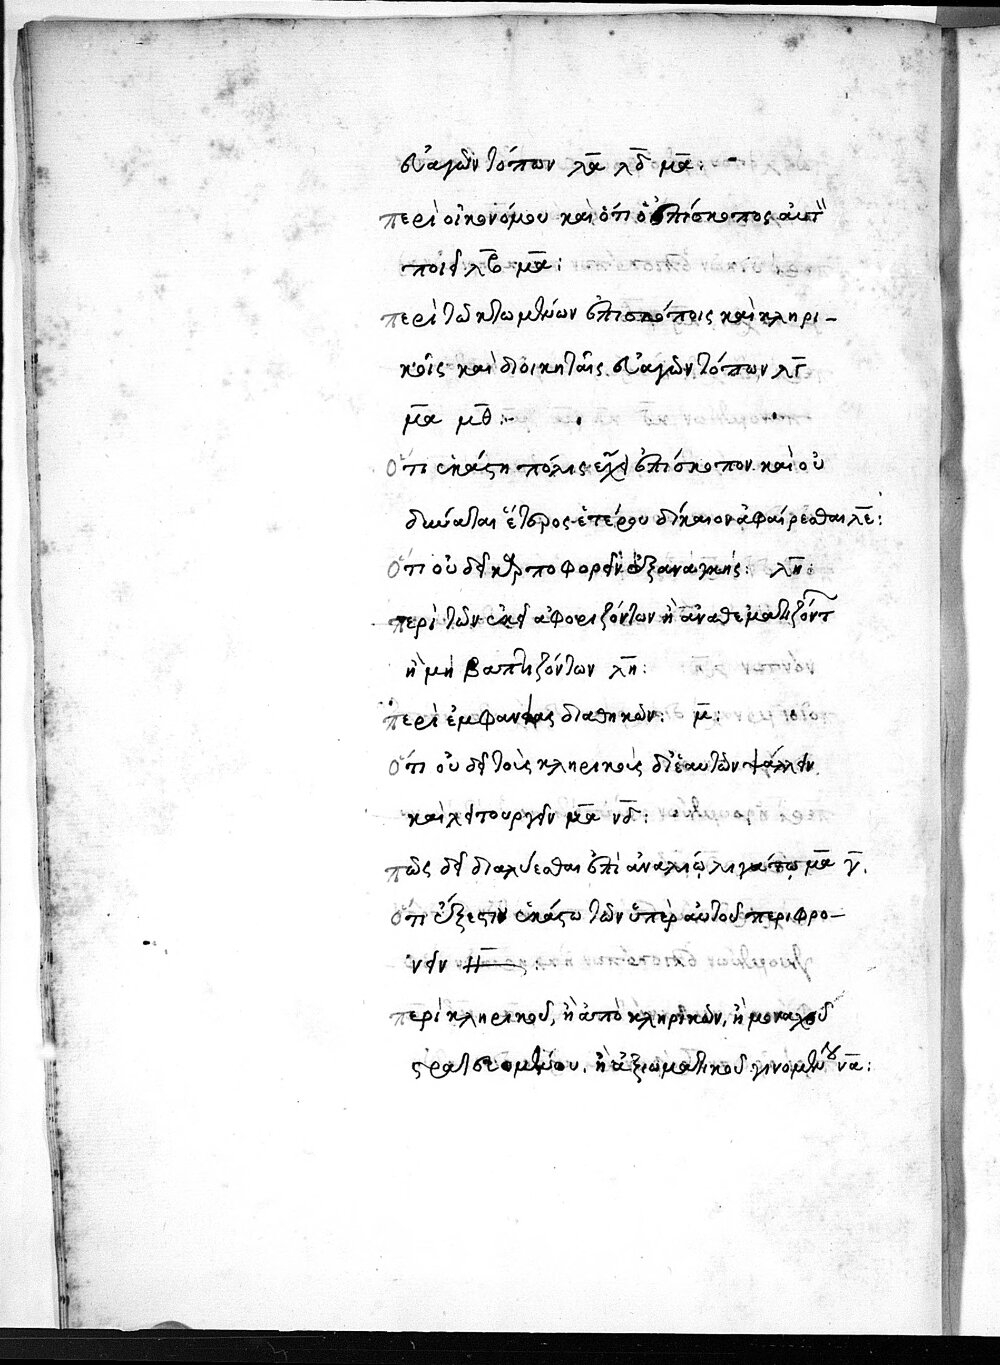 εὐαγῶν τόπων λ̅α̅ λ̅δ̅ μ̅α̅:
περὶ οἰκονόμου καὶ ὅτι ὁ ἐπίσκοπος αὐτ
ποιεῖ λ̅β̅ μ̅α̅:
περὶ τῶν κτωμένων ἐπισκόποις καὶ κληρι-
κοῖς καὶ διοικηταῖς εὐαγῶν τόπων λ̅γ̅
μ̅α̅ μ̅θ̅:-
Ὅτι ἑκάστη πόλις ἔχει ἐπίσκοπον καὶ οὐ
δύναται ἕτερος ἑτέρου δίκαιον ἀφαίρεσθαι λ̅ε̅:
Ὅτι οὐ δεῖ καρποφορεῖν ἐξανάγκης: λ̅η̅:
περὶ τῶν εἰκῆ ἀφοριζόντων ἢ ἀναθεματιζόντ
ἢ μὴ βαπτιζόντων λ̅η̅:
περὶ ἐμφανείας διαθηκῶν: μ̅:
Ὅτι οὐ δεῖ τοὺς κληρικοὺς δι' ἑαυτῶν ψάλλειν
καὶ λειτουργεῖν μ̅α̅ ν̅δ̅:
πῶς δεῖ διαλύεσθαι ἐπὶ μ̅α̅ γ̅.
Ὅτι ἔξεστιν ἑκάστω τῶν ὑπὲρ αὐτοῦ περιφρο-
νεῖν
περὶ κληρικοῦ, ἢ ἀπὸ κληρικῶν, ἢ μοναχοῦ
στρατευομένου, ἢ ἀξιωματικοῦ γινομένου ν̅α̅: